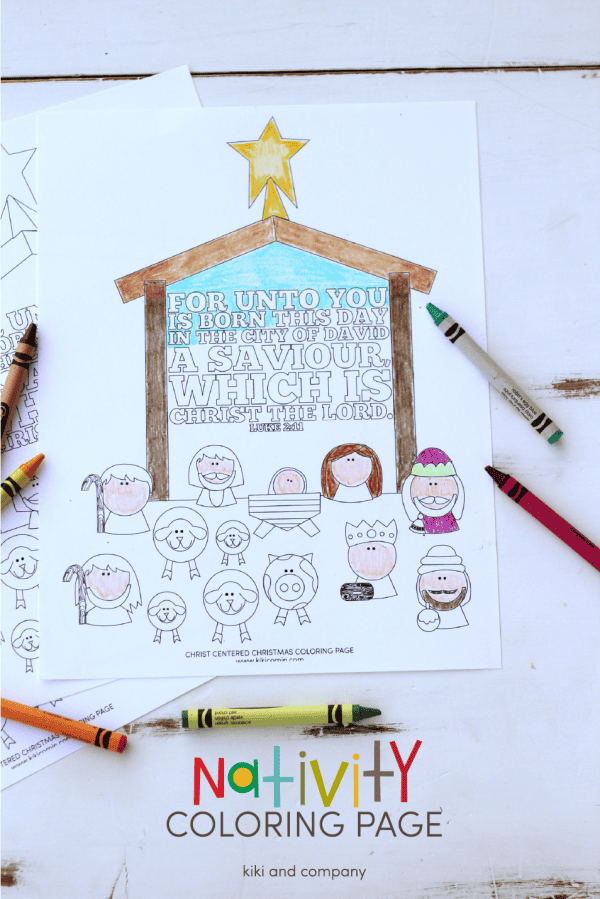 FOR UNTO YOU
IS BORN THIS DAY
IN THE CITY OF DAVID
A SAVIOUR,
WHICH IS
CHRIST THE LORD.
LUKE 2:11
CHRIST CENTERED CHRISTMAS COLORING PAGE
www.kikicomin.com
TERED CHRISTMAS COLORING PAGE
www.kikicomin.com
NatiViTY
COLORING PAGE
kiki and company